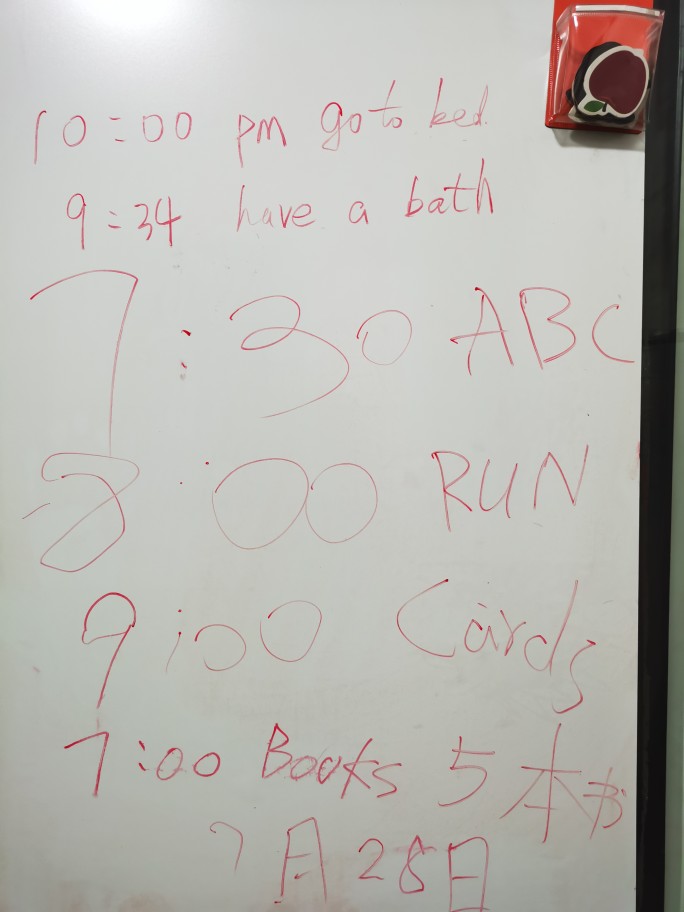 10:00 pm go to bed.
9:34 have a bath
7:30 ABC
8:00 RUN
9:00 Cards
7:00 Books 5本书
7月28日